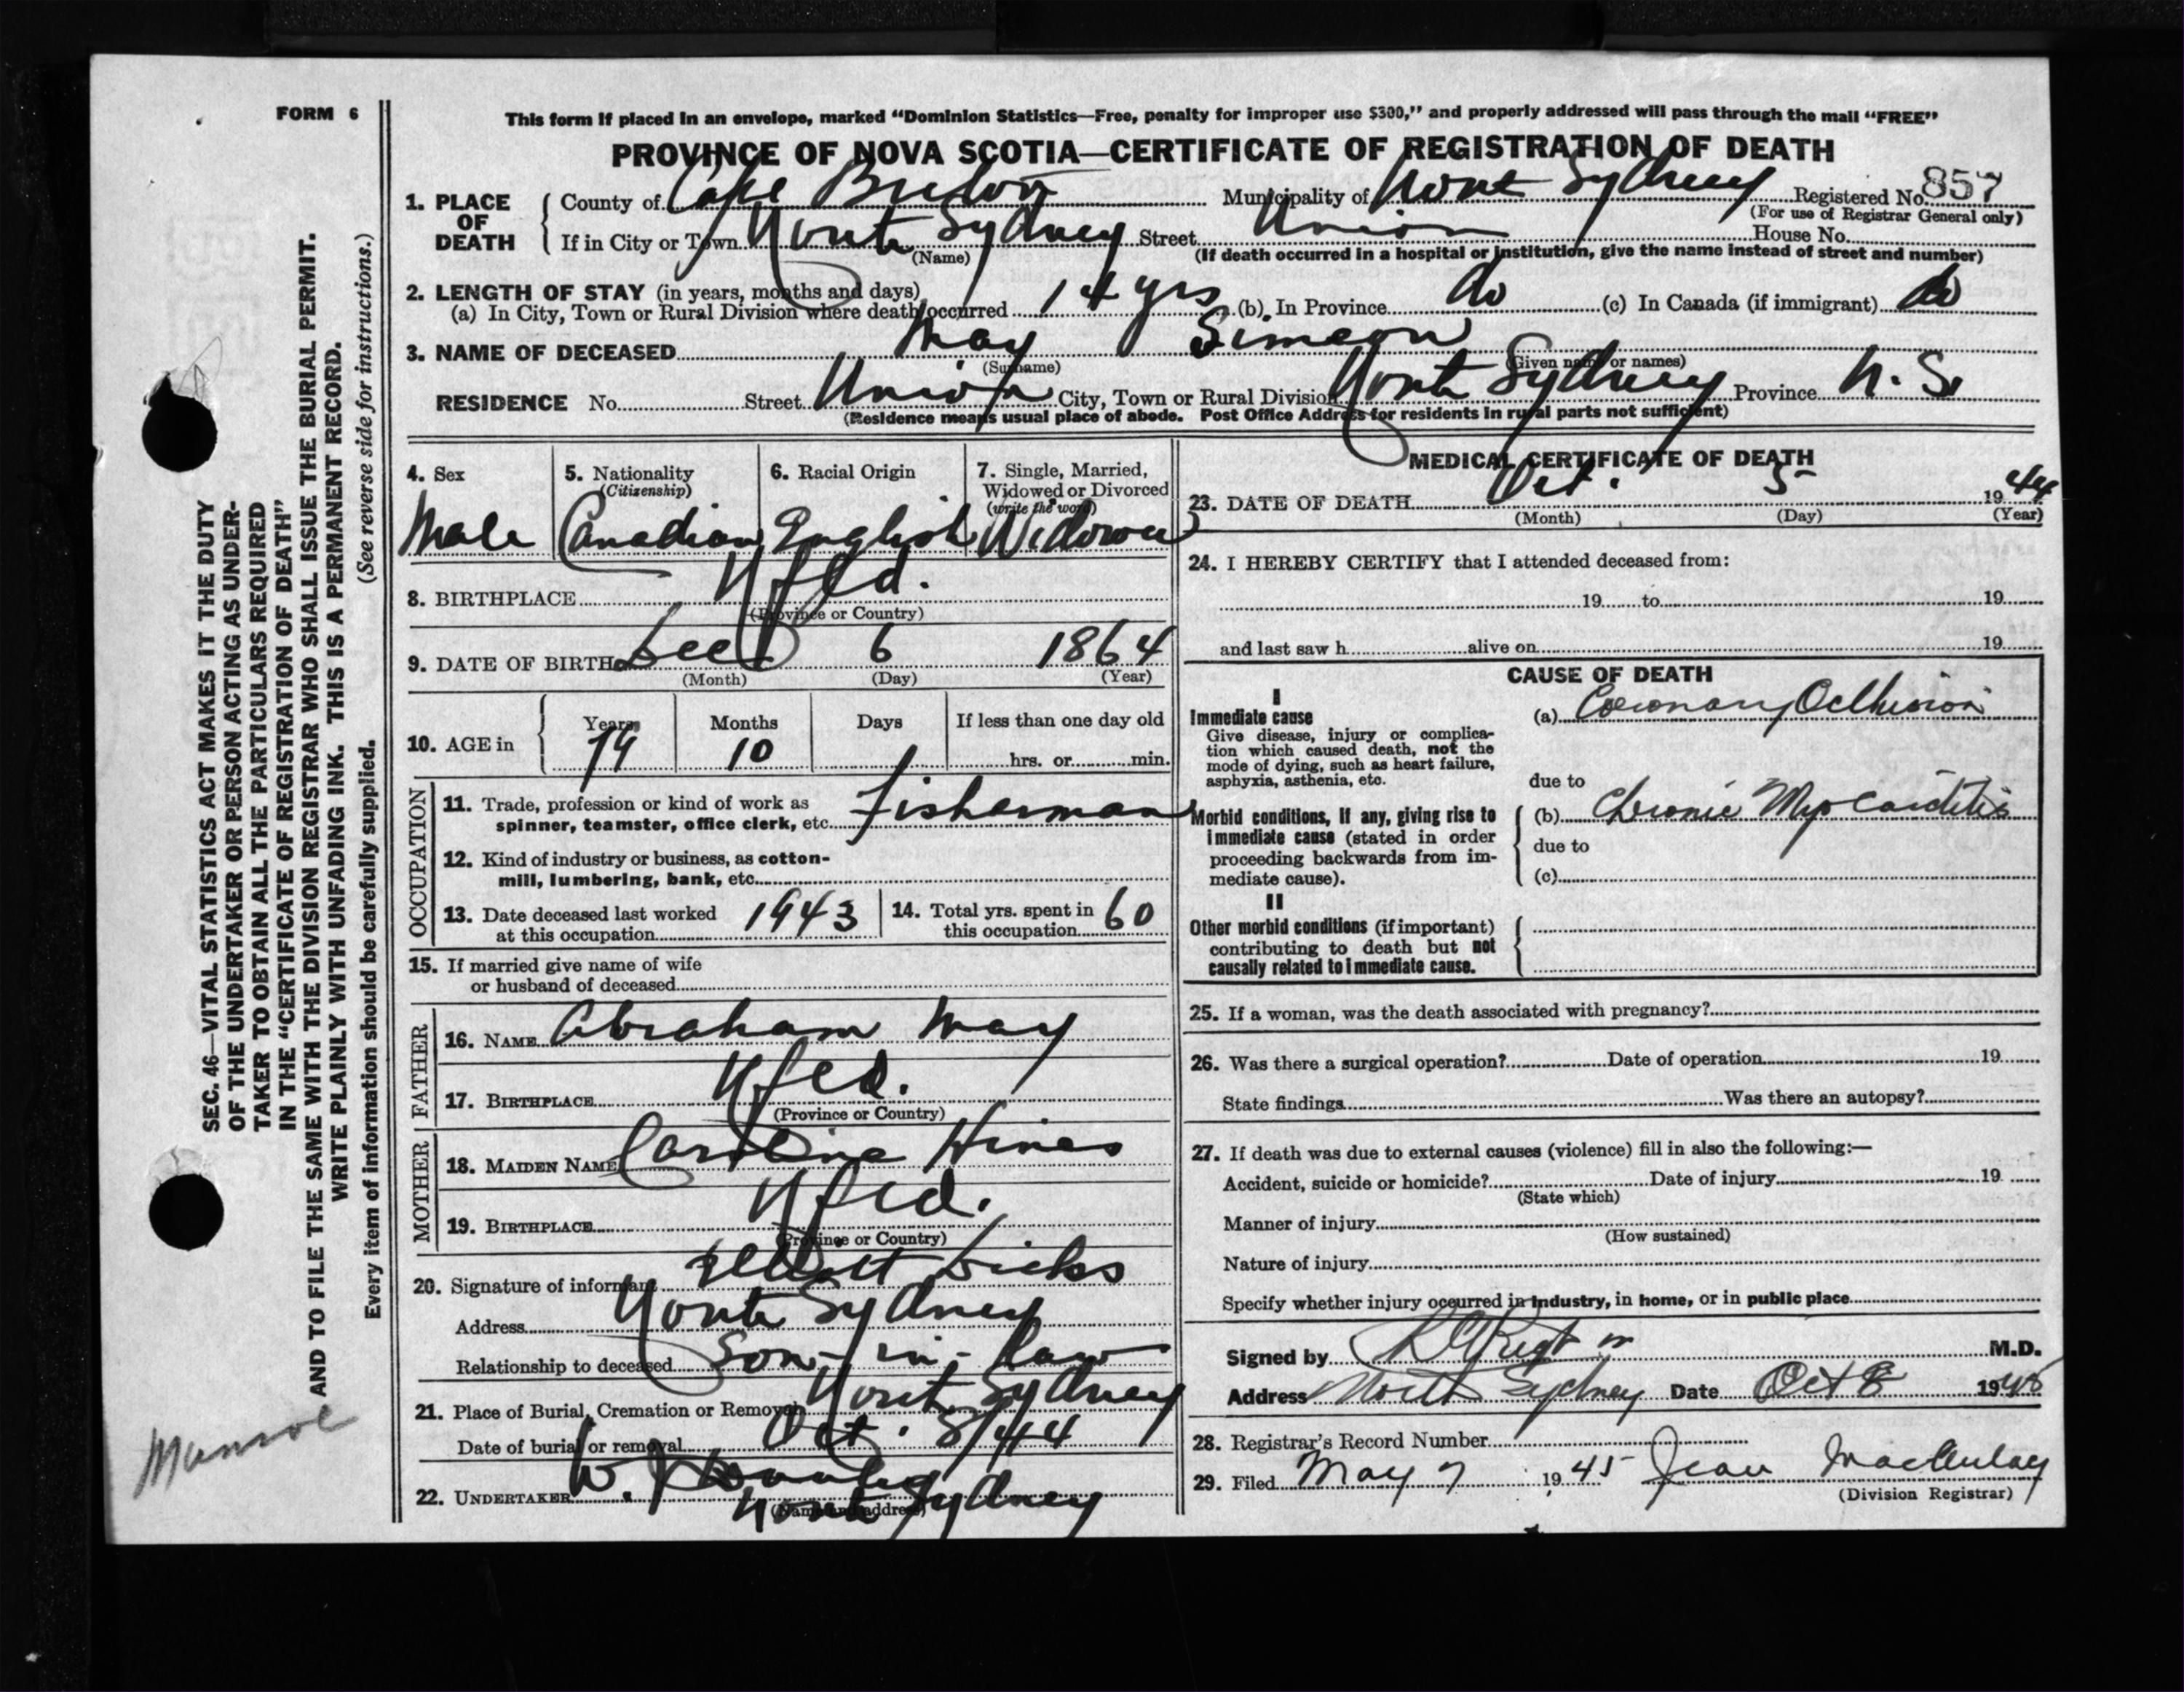 FORM 6
This form if placed in an envelope, marked "Dominion Statistics—Free, penalty for improper use $300," and properly addressed will pass through the mail "FREE"
PROVINCE OF NOVA SCOTIA—CERTIFICATE OF REGISTRATION OF DEATH
1. PLACE OF DEATH
County of Cape Breton Municipality of North Sydney Registered No. 857
(For use of Registrar General only)
If in City or Town North Sydney Street Union House No.
(Name) (If death occurred in a hospital or institution, give the name instead of street and number)
2. LENGTH OF STAY (in years, months and days)
(a) In City, Town or Rural Division where death occurred 14 yrs (b) In Province do (c) In Canada (if immigrant) do
3. NAME OF DECEASED May Simeon
(Surname) (Given name or names)
RESIDENCE No. Street Union City, Town or Rural Division North Sydney Province N.S.
(Residence means usual place of abode. Post Office Address for residents in rural parts not sufficient)
4. Sex Male
5. Nationality (Citizenship) Canadian
6. Racial Origin English
7. Single, Married, Widowed or Divorced (write the word) Widower
8. BIRTHPLACE Nfld.
(Province or Country)
9. DATE OF BIRTH Dec 6 1864
(Month) (Day) (Year)
10. AGE in Years Months Days If less than one day old
79 10 hrs. or min.
OCCUPATION
11. Trade, profession or kind of work as spinner, teamster, office clerk, etc. Fisherman
12. Kind of industry or business, as cotton-mill, lumbering, bank, etc.
13. Date deceased last worked at this occupation 1943
14. Total yrs. spent in this occupation 60
15. If married give name of wife or husband of deceased
FATHER
16. NAME Abraham May
17. BIRTHPLACE Nfld.
(Province or Country)
MOTHER
18. MAIDEN NAME Caroline Hines
19. BIRTHPLACE Nfld.
(Province or Country)
20. Signature of informant Elliott Dicks
Address North Sydney
Relationship to deceased Son-in-law
21. Place of Burial, Cremation or Removal North Sydney
Date of burial or removal Oct. 8/44
22. UNDERTAKER W. J.
North Sydney
(Name and address)
MEDICAL CERTIFICATE OF DEATH
23. DATE OF DEATH Oct. 5 1944
(Month) (Day) (Year)
24. I HEREBY CERTIFY that I attended deceased from:
19 to 19
and last saw h alive on 19
CAUSE OF DEATH
I
Immediate cause
Give disease, injury or complication which caused death, not the mode of dying, such as heart failure, asphyxia, asthenia, etc.
(a) Coronary Occlusion
due to
Morbid conditions, if any, giving rise to immediate cause (stated in order proceeding backwards from immediate cause).
(b) Chronic Myocarditis
due to
(c)
II
Other morbid conditions (if important) contributing to death but not causally related to immediate cause.
25. If a woman, was the death associated with pregnancy?
26. Was there a surgical operation? Date of operation 19
State findings Was there an autopsy?
27. If death was due to external causes (violence) fill in also the following:—
Accident, suicide or homicide? Date of injury 19
(State which)
Manner of injury
(How sustained)
Nature of injury
Specify whether injury occurred in industry, in home, or in public place
Signed by M.D.
Address North Sydney Date Oct 8 19
28. Registrar's Record Number
29. Filed May 7 1945 Jean MacAulay
(Division Registrar)
SEC. 46—VITAL STATISTICS ACT MAKES IT THE DUTY
OF THE UNDERTAKER OR PERSON ACTING AS UNDER-
TAKER TO OBTAIN ALL THE PARTICULARS REQUIRED
IN THE "CERTIFICATE OF REGISTRATION OF DEATH"
AND TO FILE THE SAME WITH THE DIVISION REGISTRAR WHO SHALL ISSUE THE BURIAL PERMIT.
WRITE PLAINLY WITH UNFADING INK. THIS IS A PERMANENT RECORD.
Every item of information should be carefully supplied. (See reverse side for instructions.)
Munroe